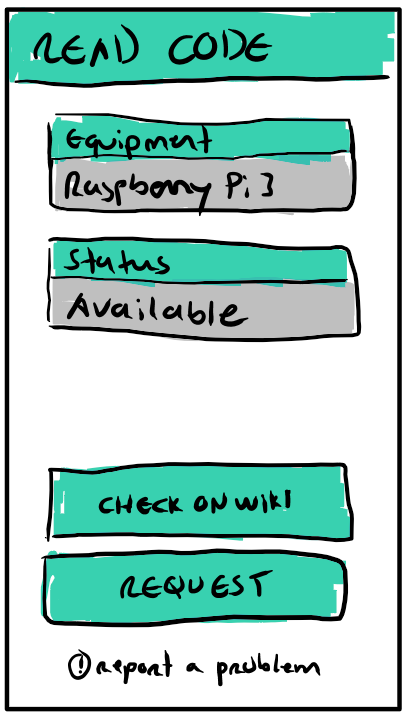 READ CODE
Equipment
Raspberry Pi 3
Status
Available
CHECK ON WIKI
REQUEST
! report a problem